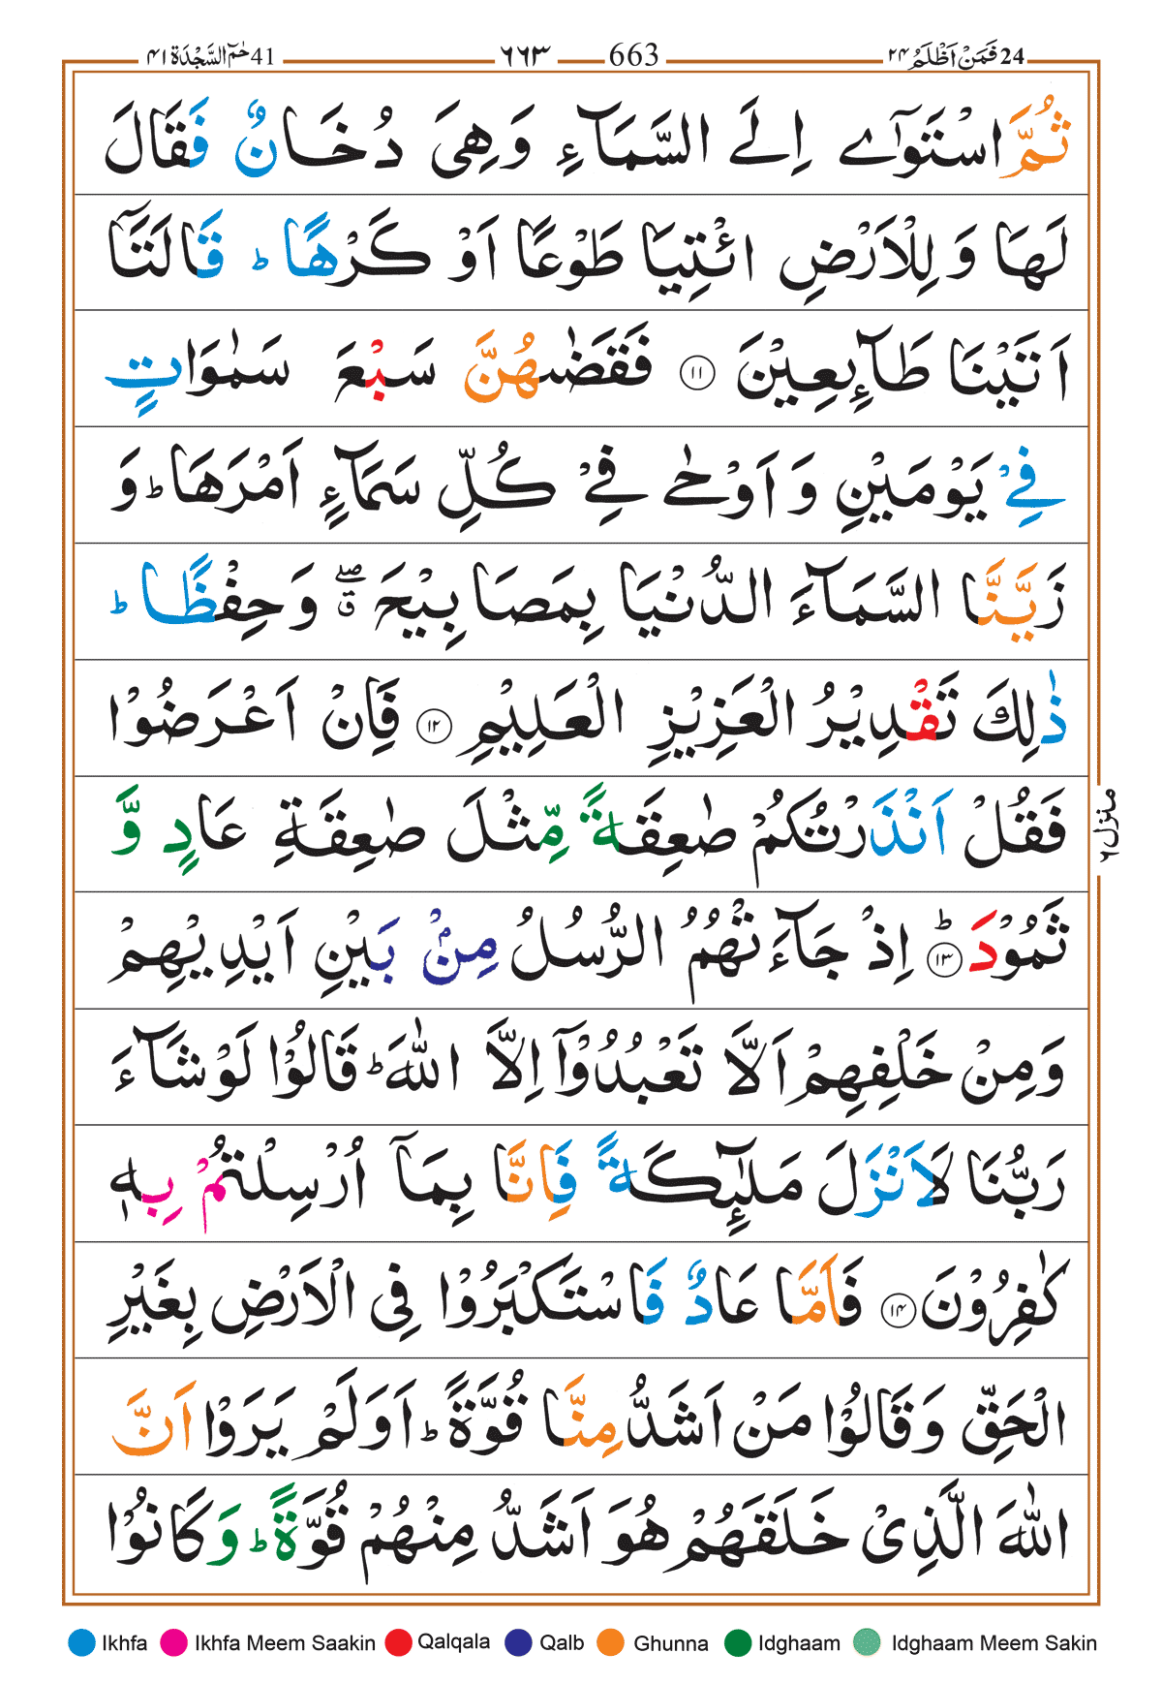 24 فَمَنْ اَظْلَمُ ۲۴ 663 ٦٦٣ 41 حٰمٓ السَّجْدَة ۴۱
ثُمَّ اسْتَوٰٓى اِلَى السَّمَآءِ وَهِىَ دُخَانٌ فَقَالَ
لَهَا وَ لِلْاَرْضِ ائْتِيَا طَوْعًا اَوْ كَرْهًا ؕ قَالَتَاۤ
اَتَيْنَا طَآٮِٕعِيْنَ ۱۱ فَقَضٰٮهُنَّ سَبْعَ سَمٰوَاتٍ
فِىْ يَوْمَيْنِ وَ اَوْحٰى فِىْ كُلِّ سَمَآءٍ اَمْرَهَا ؕ وَ
زَيَّنَّا السَّمَآءَ الدُّنْيَا بِمَصَابِيْحَ ۖۗ وَحِفْظًا ؕ
ذٰلِكَ تَقْدِيْرُ الْعَزِيْزِ الْعَلِيْمِ ۱۲ فَاِنْ اَعْرَضُوْا
فَقُلْ اَنْذَرْتُكُمْ صٰعِقَةً مِّثْلَ صٰعِقَةِ عَادٍ وَّ
ثَمُوْدَ ؕ ۱۳ اِذْ جَآءَتْهُمُ الرُّسُلُ مِنْۢ بَيْنِ اَيْدِيْهِمْ
وَمِنْ خَلْفِهِمْ اَلَّا تَعْبُدُوْۤا اِلَّا اللّٰهَ ؕ قَالُوْا لَوْ شَآءَ
رَبُّنَا لَاَنْزَلَ مَلٰٓٮِٕكَةً فَاِنَّا بِمَاۤ اُرْسِلْتُمْ بِهٖ
كٰفِرُوْنَ ۱۴ فَاَمَّا عَادٌ فَاسْتَكْبَرُوْا فِى الْاَرْضِ بِغَيْرِ
الْحَقِّ وَقَالُوْا مَنْ اَشَدُّ مِنَّا قُوَّةً ؕ اَوَلَمْ يَرَوْا اَنَّ
اللّٰهَ الَّذِىْ خَلَقَهُمْ هُوَ اَشَدُّ مِنْهُمْ قُوَّةً ؕ وَ كَانُوْا
منزل ٦
Ikhfa Ikhfa Meem Saakin Qalqala Qalb Ghunna Idghaam Idghaam Meem Sakin